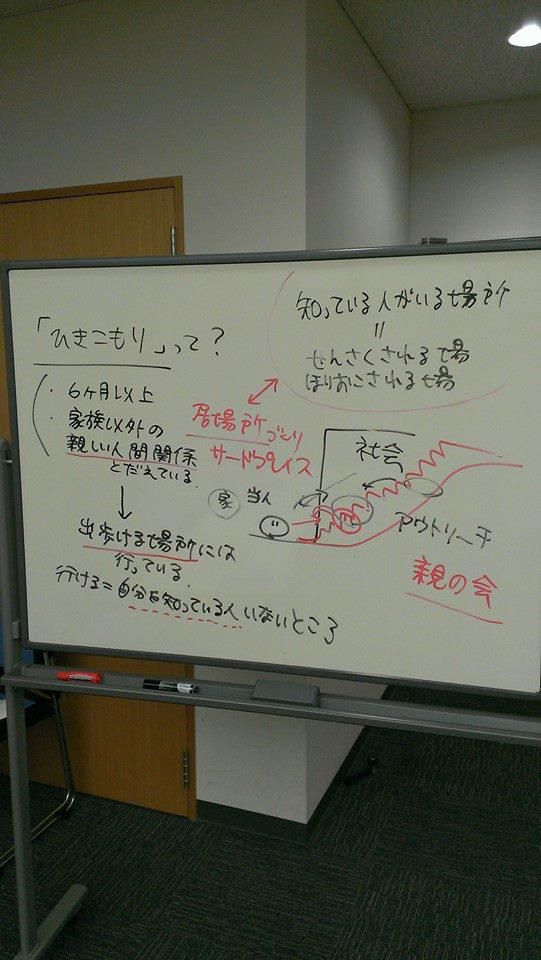 「ひきこもり」って?
・6ヶ月以上
・家族以外の
親しい人間関係
とだえている。
↓
出歩ける場所には
行っている。
行ける=自分を知っている人いないところ
知っている人がいる場所
=
せんさくされる場
ほりおこされる場
居場所づくり
サードプレイス
家
当人
社会
アウトリーチ
親の会